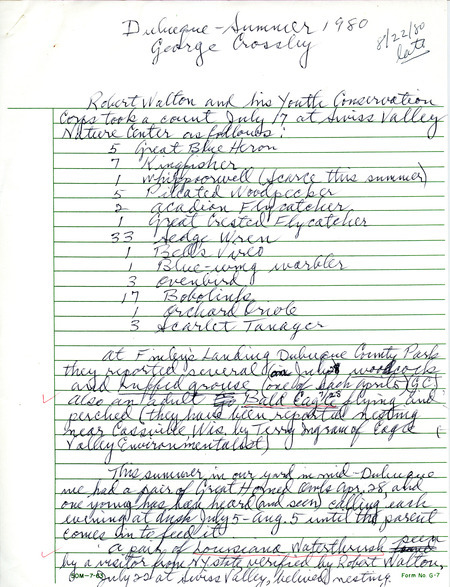 Dubuque - Summer 1980
George Crossley
8/22/80
late
Robert Walton and his Youth Conservation
Corps took a count July 17 at Swiss Valley
Nature Center as follows:
5 Great Blue Heron
7 Kingfisher
1 Whippoorwell (scarce this summer)
5 Pileated Woodpecker
2 Acadian Flycatcher
1 Great Crested Flycatcher
33 Sedge Wren
1 Bell's Vireo
1 Blue-wing warbler
3 Ovenbird
17 Bobolinks
1 Orchard Oriole
3 Scarlet Tanager
At Finley's Landing Dubuque County Park
they reported several on July 8 woodcocks
and ruffed grouse, (one of each April 5 (GC)
also an adult Bald Eagle 7/28 flying and
perched (they have been reported nesting
near Cassville, Wis. by Terry Ingram of Eagle
Valley Environmentalist)
This summer in our yard in mid-Dubuque
we had a pair of Great Horned Owls Apr. 28, and
one young has been heard (and seen) calling each
evening at dusk July 5-Aug. 5 until the parent
comes in to feed it.
A pair of Louisiana Waterthrush seen
by a visitor from NY state verified by Robert Walton,
July 22 at Swiss Valley, believed nesting.
SDM-7-63
Form No. G-7